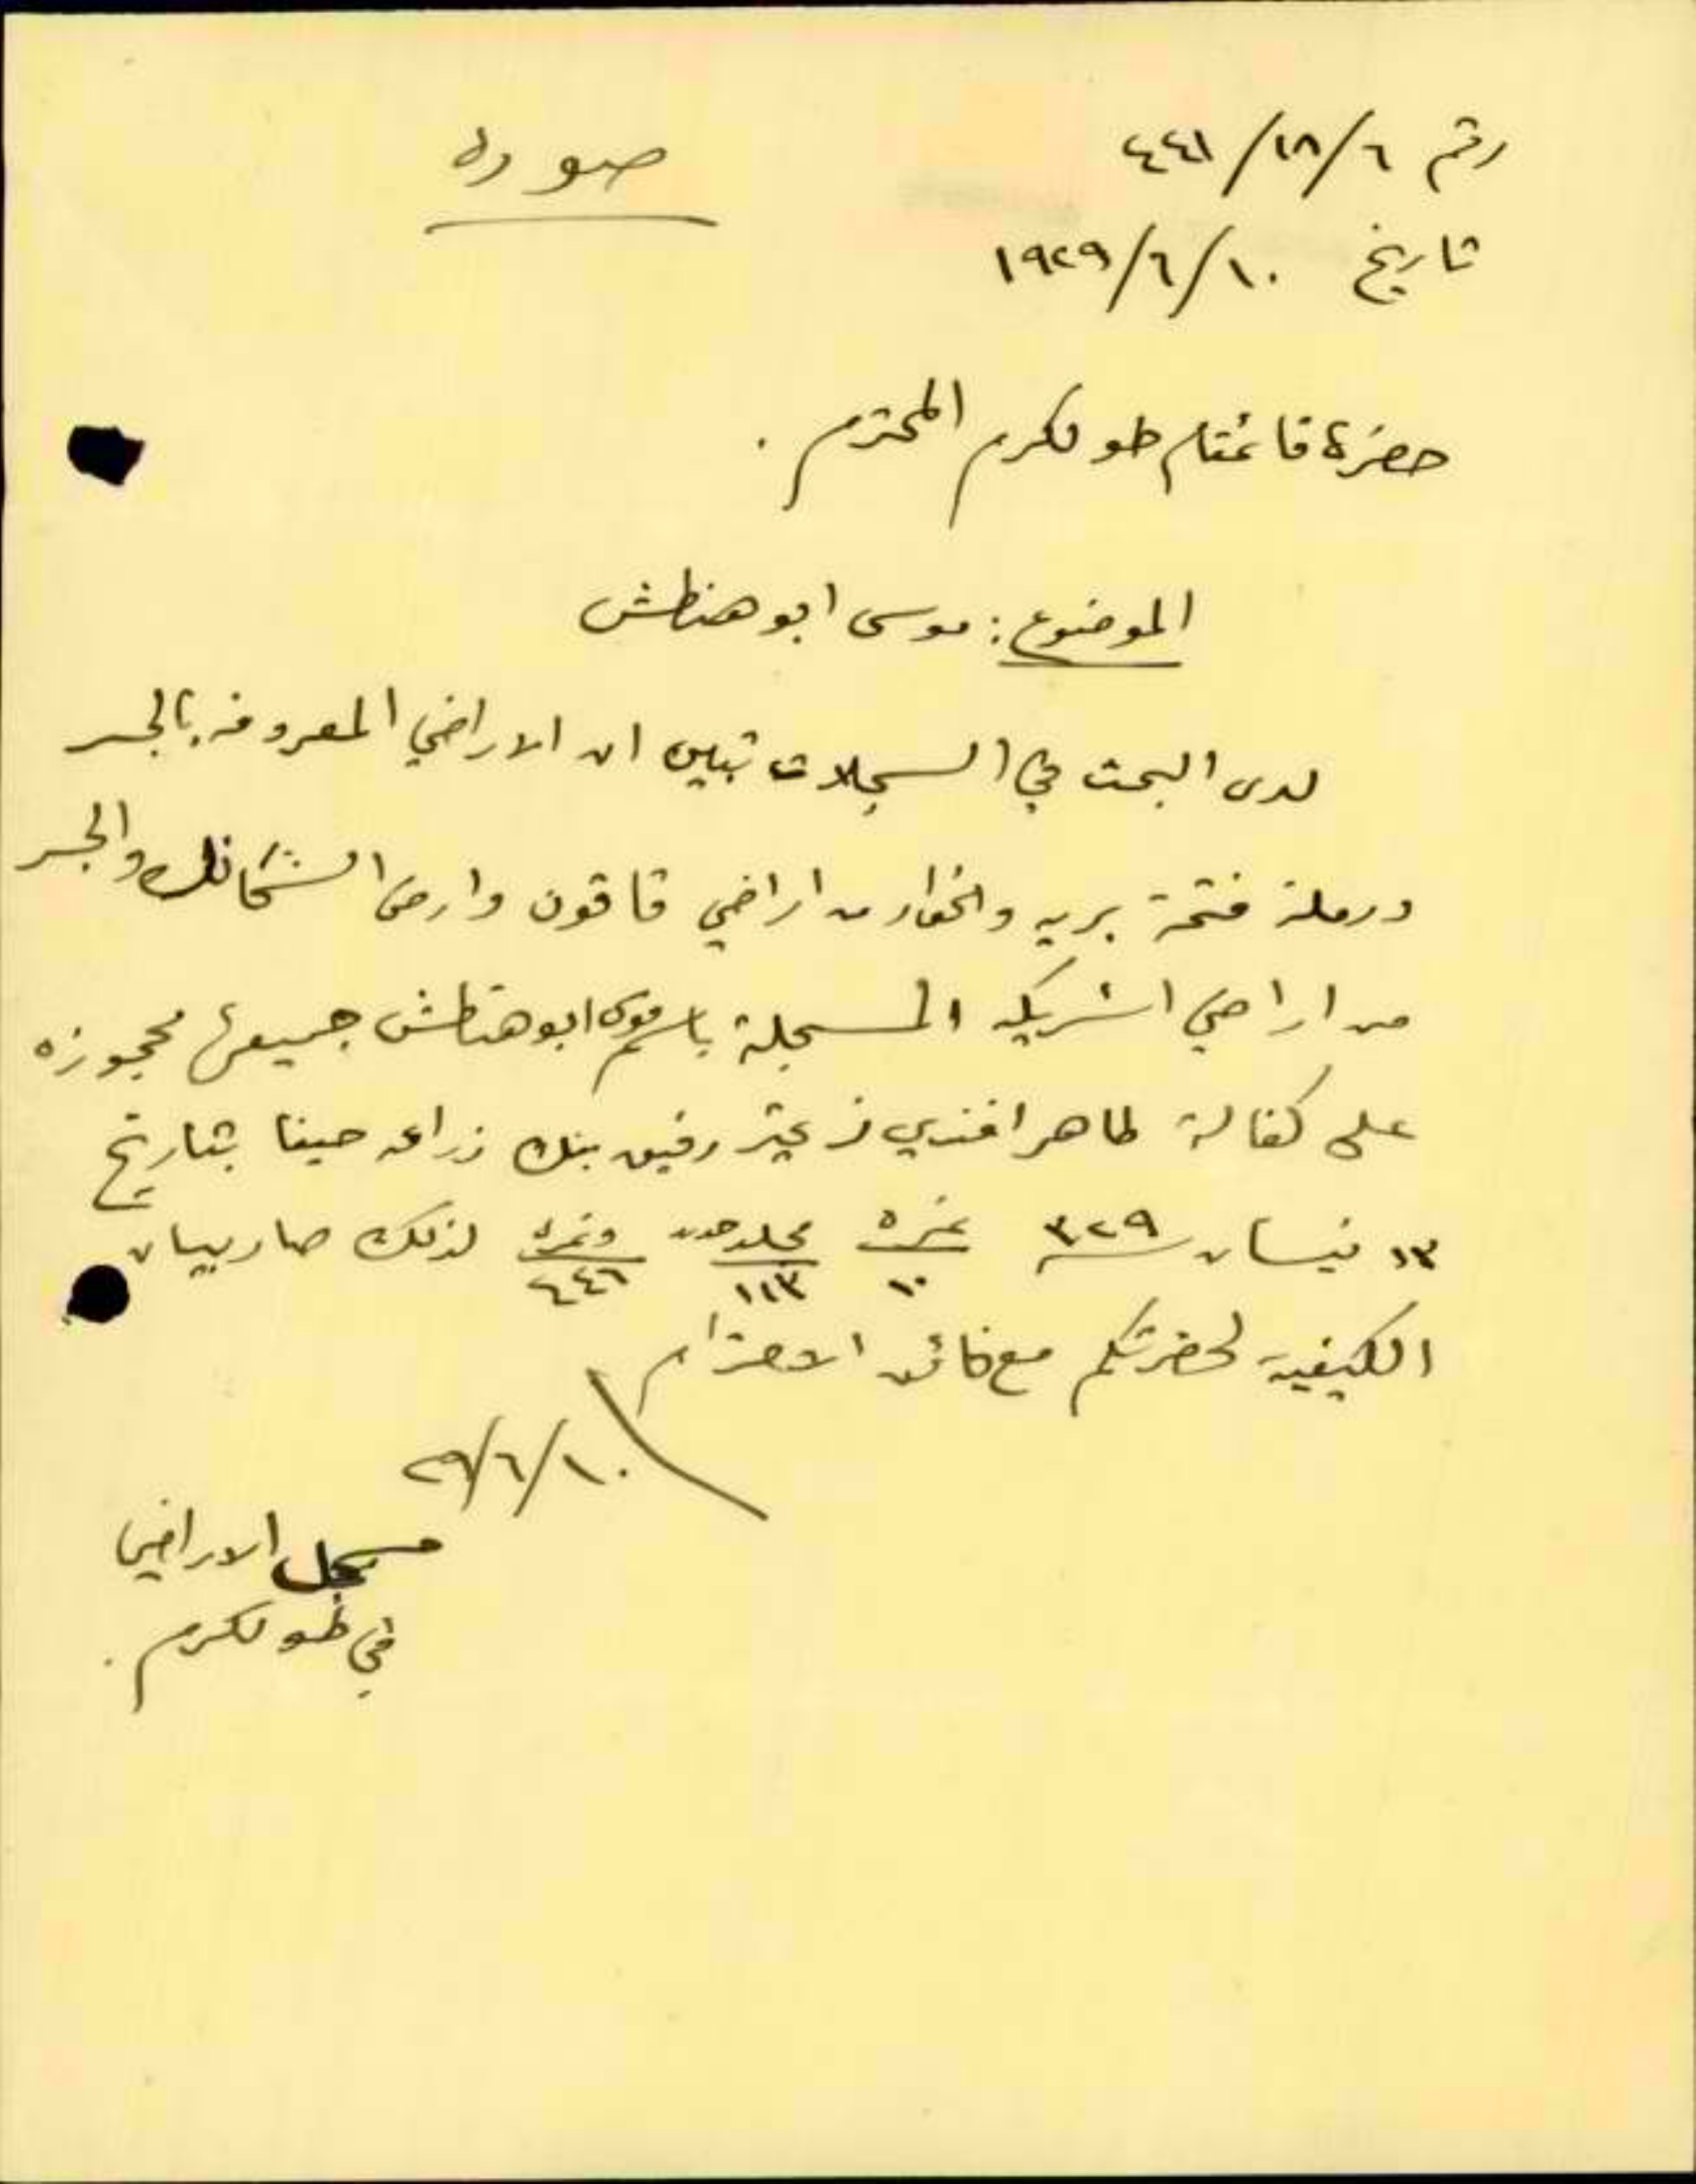 رقم ٦/١٨/٤٤١
صوره
تاريخ ١٠/٦/١٩٢٩
حضرة قائمقام طولكرم المحترم .
الموضوع : موسى ابو هنطش
لدى البحث في السجلات تبين ان الاراضي المعروفه بالجسر
ورملة فتحة بريه والخوار من اراضي قاقون وارض الشكانك والجسر
من اراضي اشريكه المسجلة باسم موسى ابو هنطش جميعها محجوزه
على كفالة طاهر افندي زعيتر رفيق بنك زراعه حيفا بتاريخ
١٣ نيسان ٣٢٩ نمره ١٠ مجلد ١١٣ ونمره ٤٤٦ لذلك صار بيان
الكيفية لحضرتكم مع فائق الاحترام
١٠/٦/٢٩
مسجل الاراضي
في طولكرم .